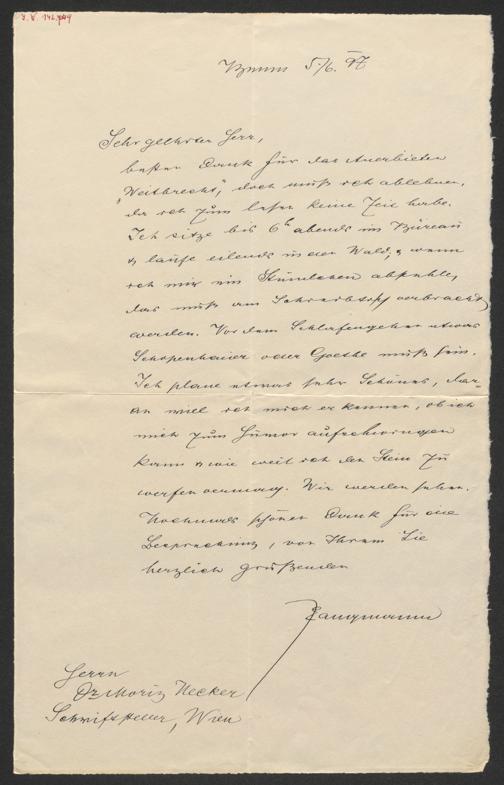 Brünn 5./6. 97
Sehr geehrter Herr,
besten Dank für das Anerbieten
"Weitbrecht", doch muß ich ablehnen,
da ich zum lesen keine Zeit habe.
Ich sitze bis 6h abends im Bureau
& laufe eilends in den Wald, & wenn
ich mir ein Stündchen abstehle,
das muß am Schreibtisch verbracht
werden. Vor dem Schlafengehen etwas
Schopenhauer oder Goethe muß sein.
Ich plane etwas sehr Schönes, dar-
an will ich mich erkennen, ob ich
mich zum Humor aufschwingen
kann & wie weit ich den Stein zu
werfen vermag. Wir werden sehen.
Nochmals schönen Dank für die
Besprechung, von Ihrem Sie
herzlich grüßenden
Langmann
Herrn
Dr Moriz Necker
Schriftsteller, Wien